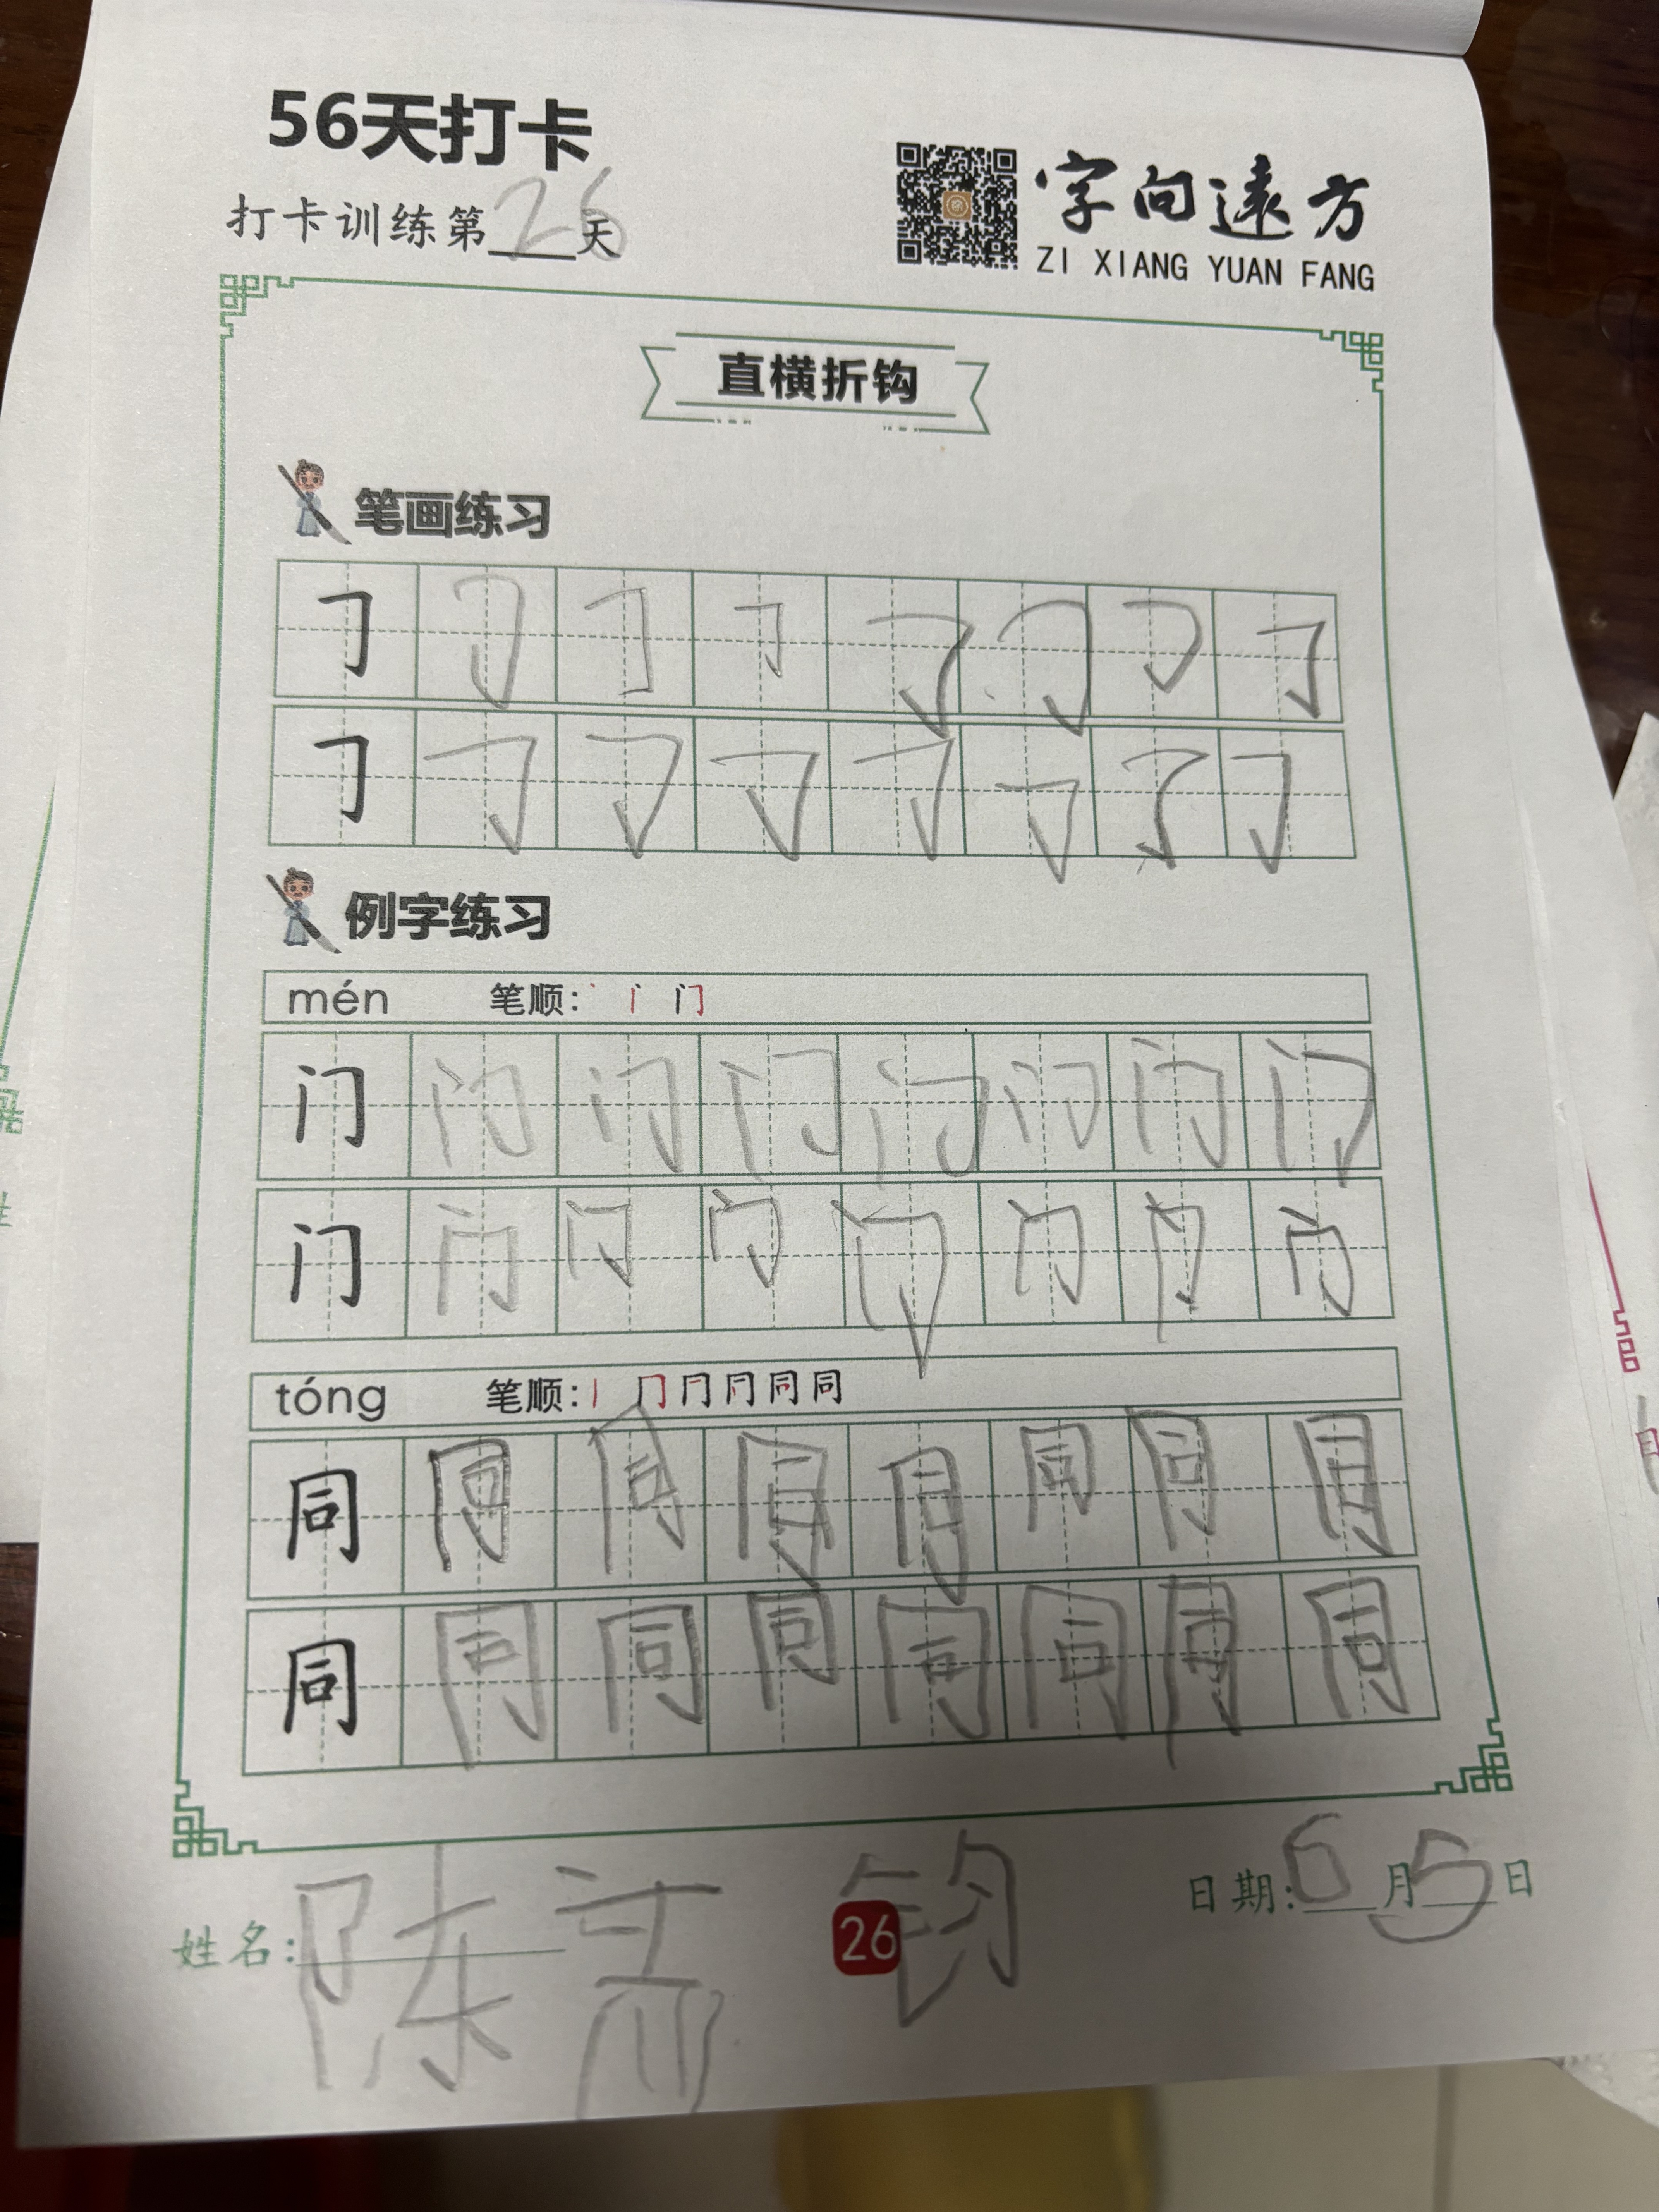 56天打卡
打卡训练第26天
字向遠方
ZI XIANG YUAN FANG
直横折钩
笔画练习
𠃌𠃌𠃌𠃌𠃌𠃌𠃌𠃌
𠃌𠃌𠃌𠃌𠃌𠃌𠃌𠃌
例字练习
mén 笔顺:丶 门
门门门门门门门门
门门门门门门门门
tóng 笔顺:丨 冂 同 同
同同同同同同同同
同同同同同同同同
姓名:陈 钧
26
日期:6月5日